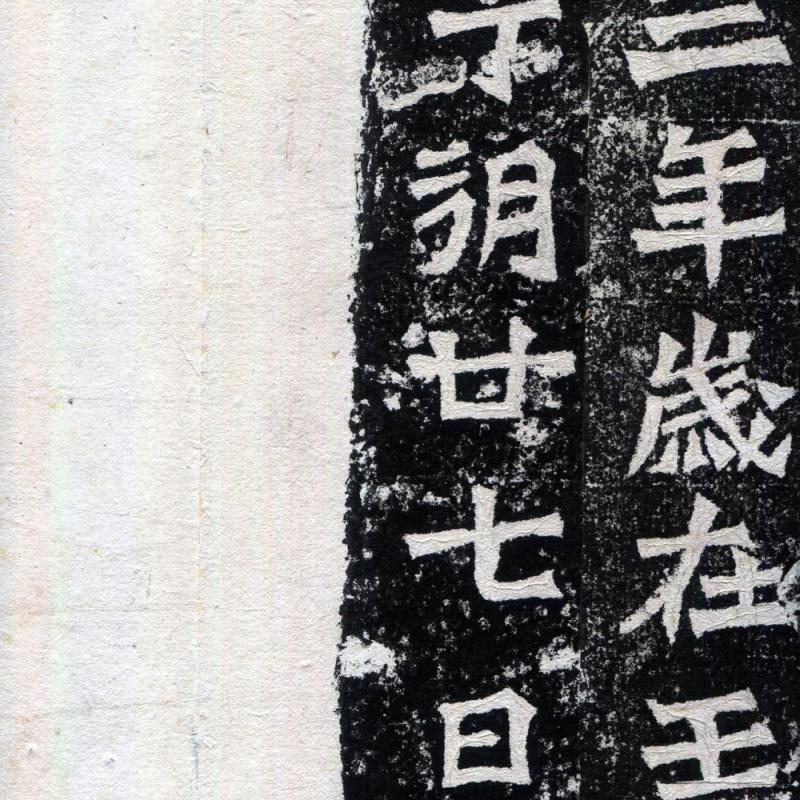 三年歲在壬
子朔廿七日